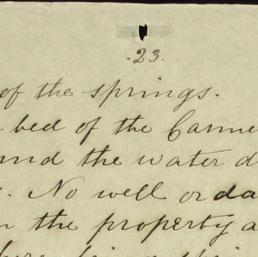 .23.
of the springs.
bed of the
and the water
No well or da
the property a